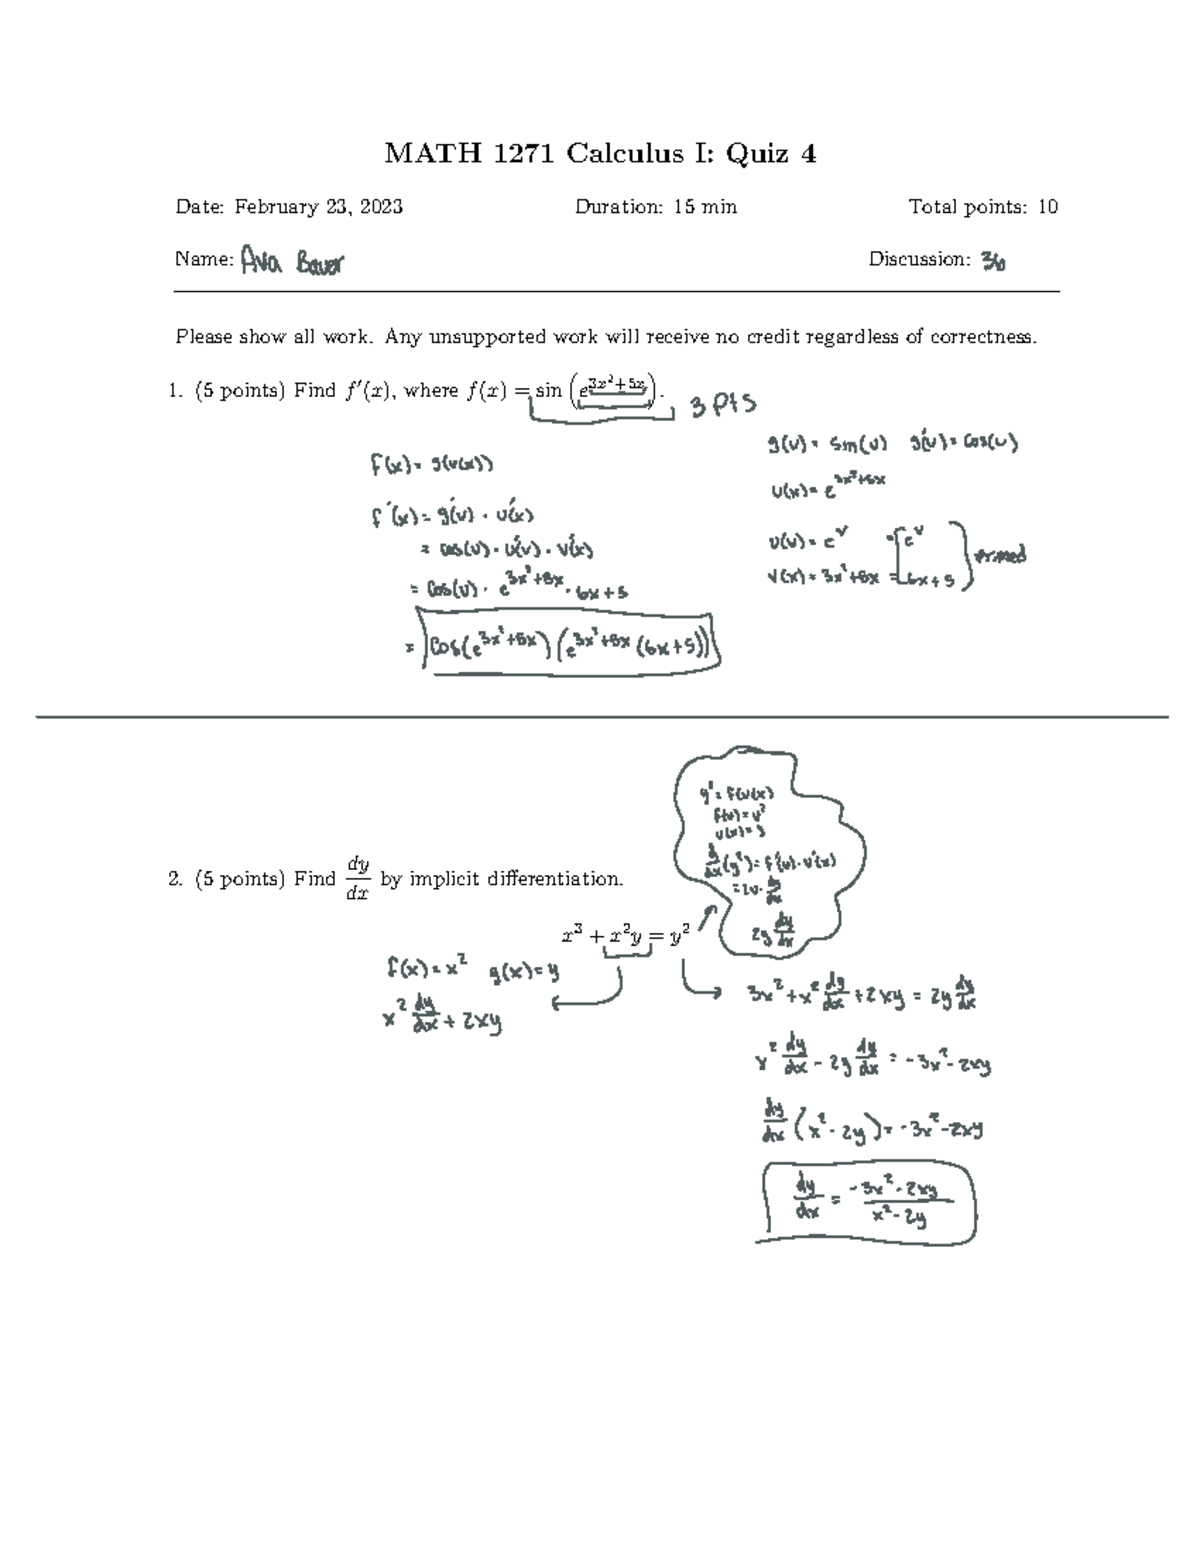 MATH 1271 Calculus I: Quiz 4
Date: February 23, 2023 Duration: 15 min Total points: 10
Name: Ava Bauer Discussion: 36
Please show all work. Any unsupported work will receive no credit regardless of correctness.
1. (5 points) Find f′(x), where f(x) = sin (e^{3x²+5x}).
3 Pts
f(x) = g(u(x))
f′(x) = g′(u) · u′(x)
= cos(u) · u′(v) · v′(x)
= cos(u) · e^{3x²+5x} · 6x+5
= cos(e^{3x²+5x})(e^{3x²+5x}(6x+5))
g(u) = sin(u) g′(u) = cos(u)
u(x) = e^{3x²+5x}
u(v) = e^v = e^v
v(x) = 3x²+5x = 6x+5
primed
2. (5 points) Find dy/dx by implicit differentiation.
x³ + x²y = y²
y² = f(u(x)
f(u) = u²
u(x) = y
d/dx (y²) = f′(u) · u′(x)
= 2u · dy/dx
2y dy/dx
f(x) = x² g(x) = y
x² dy/dx + 2xy
3x² + x² dy/dx + 2xy = 2y dy/dx
x² dy/dx - 2y dy/dx = -3x² - 2xy
dy/dx (x² - 2y) = -3x² - 2xy
dy/dx = (-3x² - 2xy)/(x² - 2y)